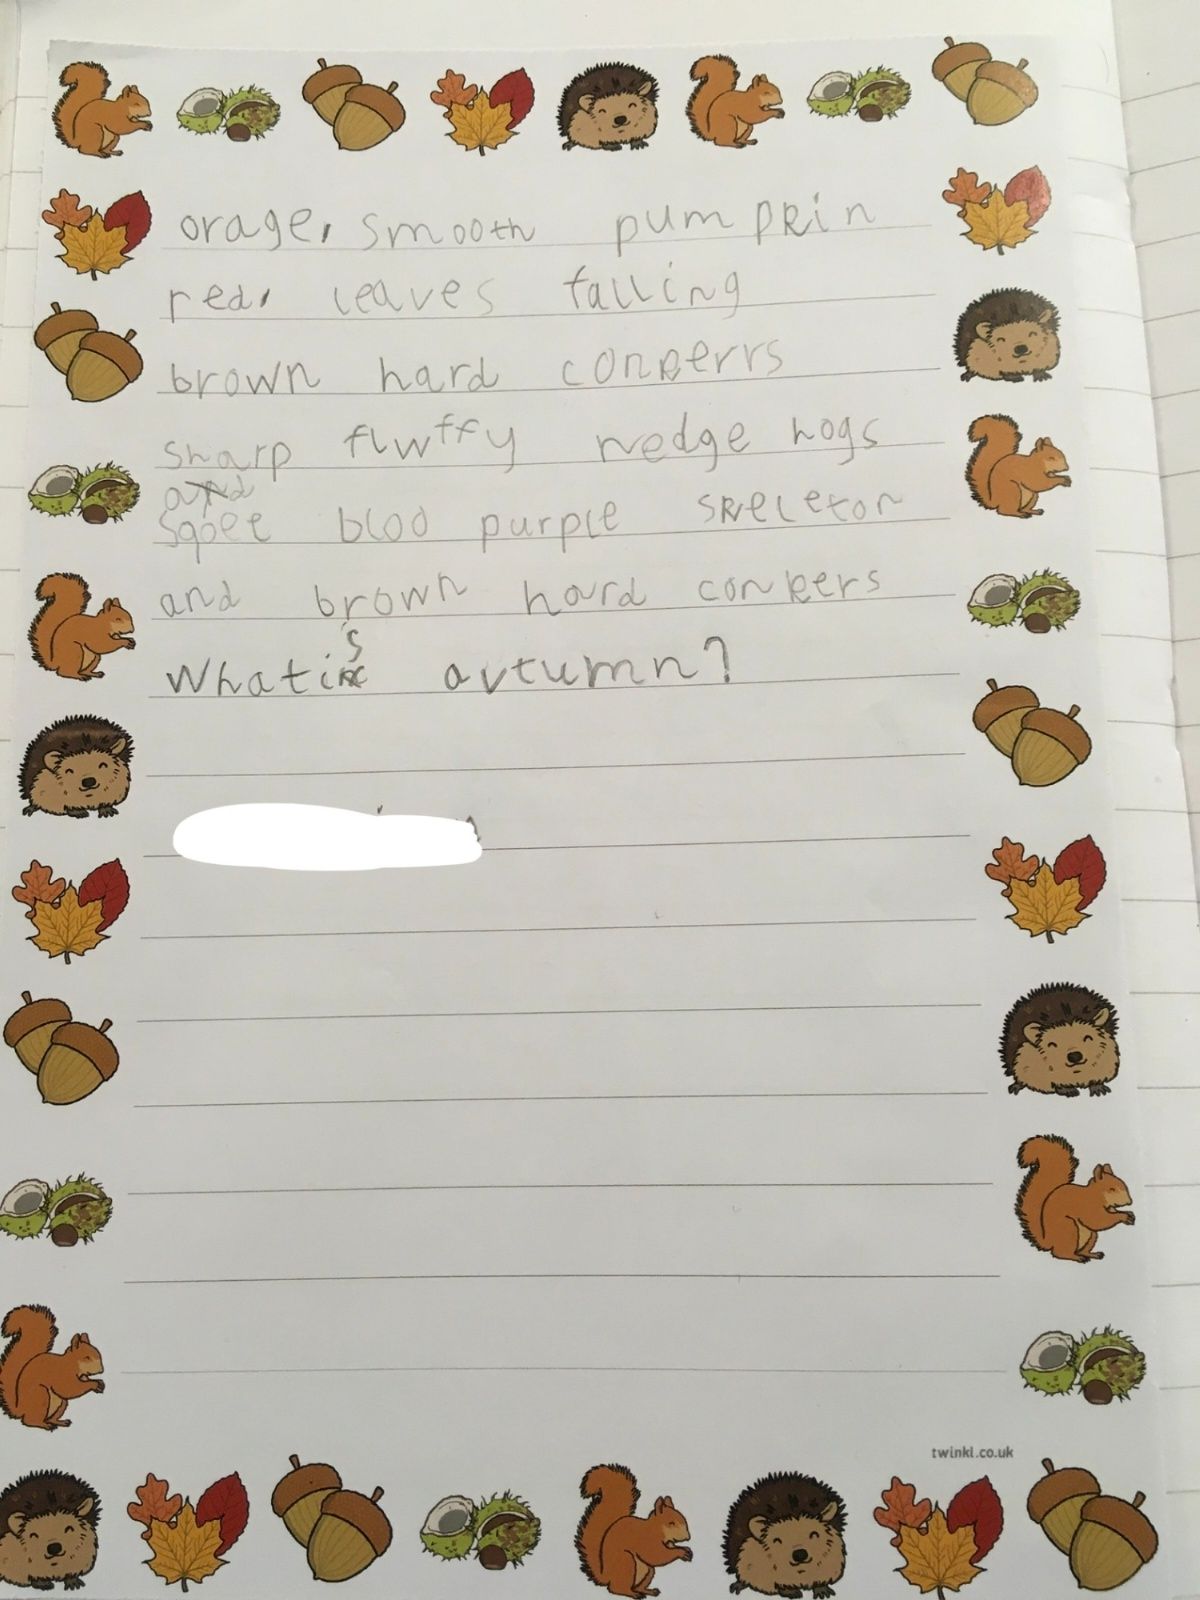 orage, smooth pumpkin
red, leaves falling
brown hard conkerrs
sharp fluffy hedge hogs
and
sgoet bloo purple skeleton
and brown hard conkers
What is autumn?
twinkl.co.uk